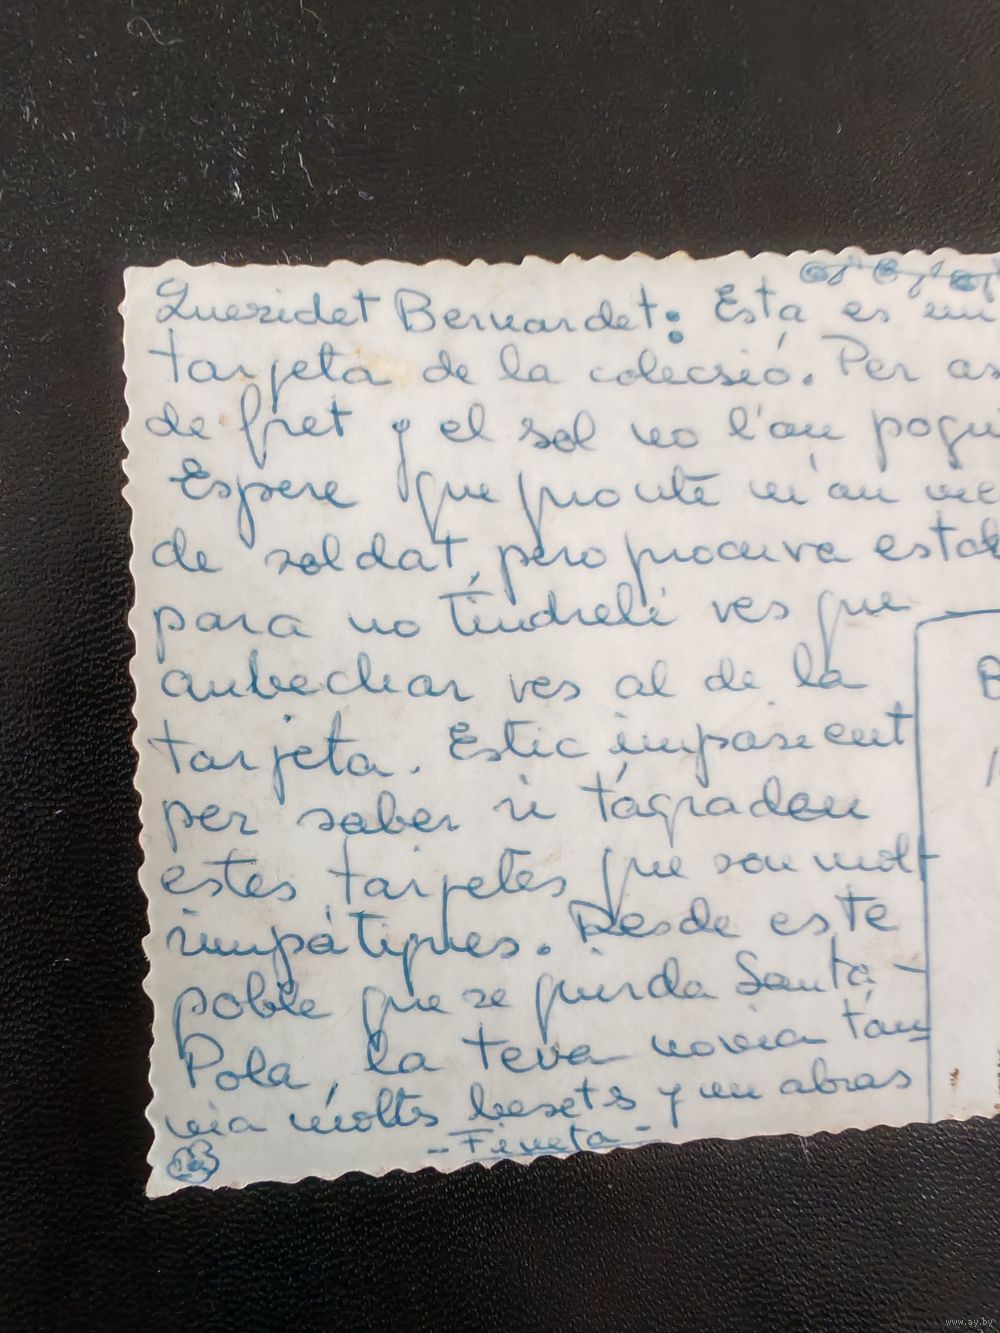 Queridet Bernardet: Esta es un
tarjeta de la colecsió. Per as
de fret y el sol no l'an pogu
Espere que pronte m'an vie
de soldat, pero procura estab
para no tindreli ves que
anbechar ves al de la
tarjeta. Estic impasient
per saber si t'agraden
estes tarjetes que son molt
simpátiques. Desde este
poble que se
Santa-
Pola, la teva novia t'an
via molts besets y un abras
- Fineta -
www.ay.by